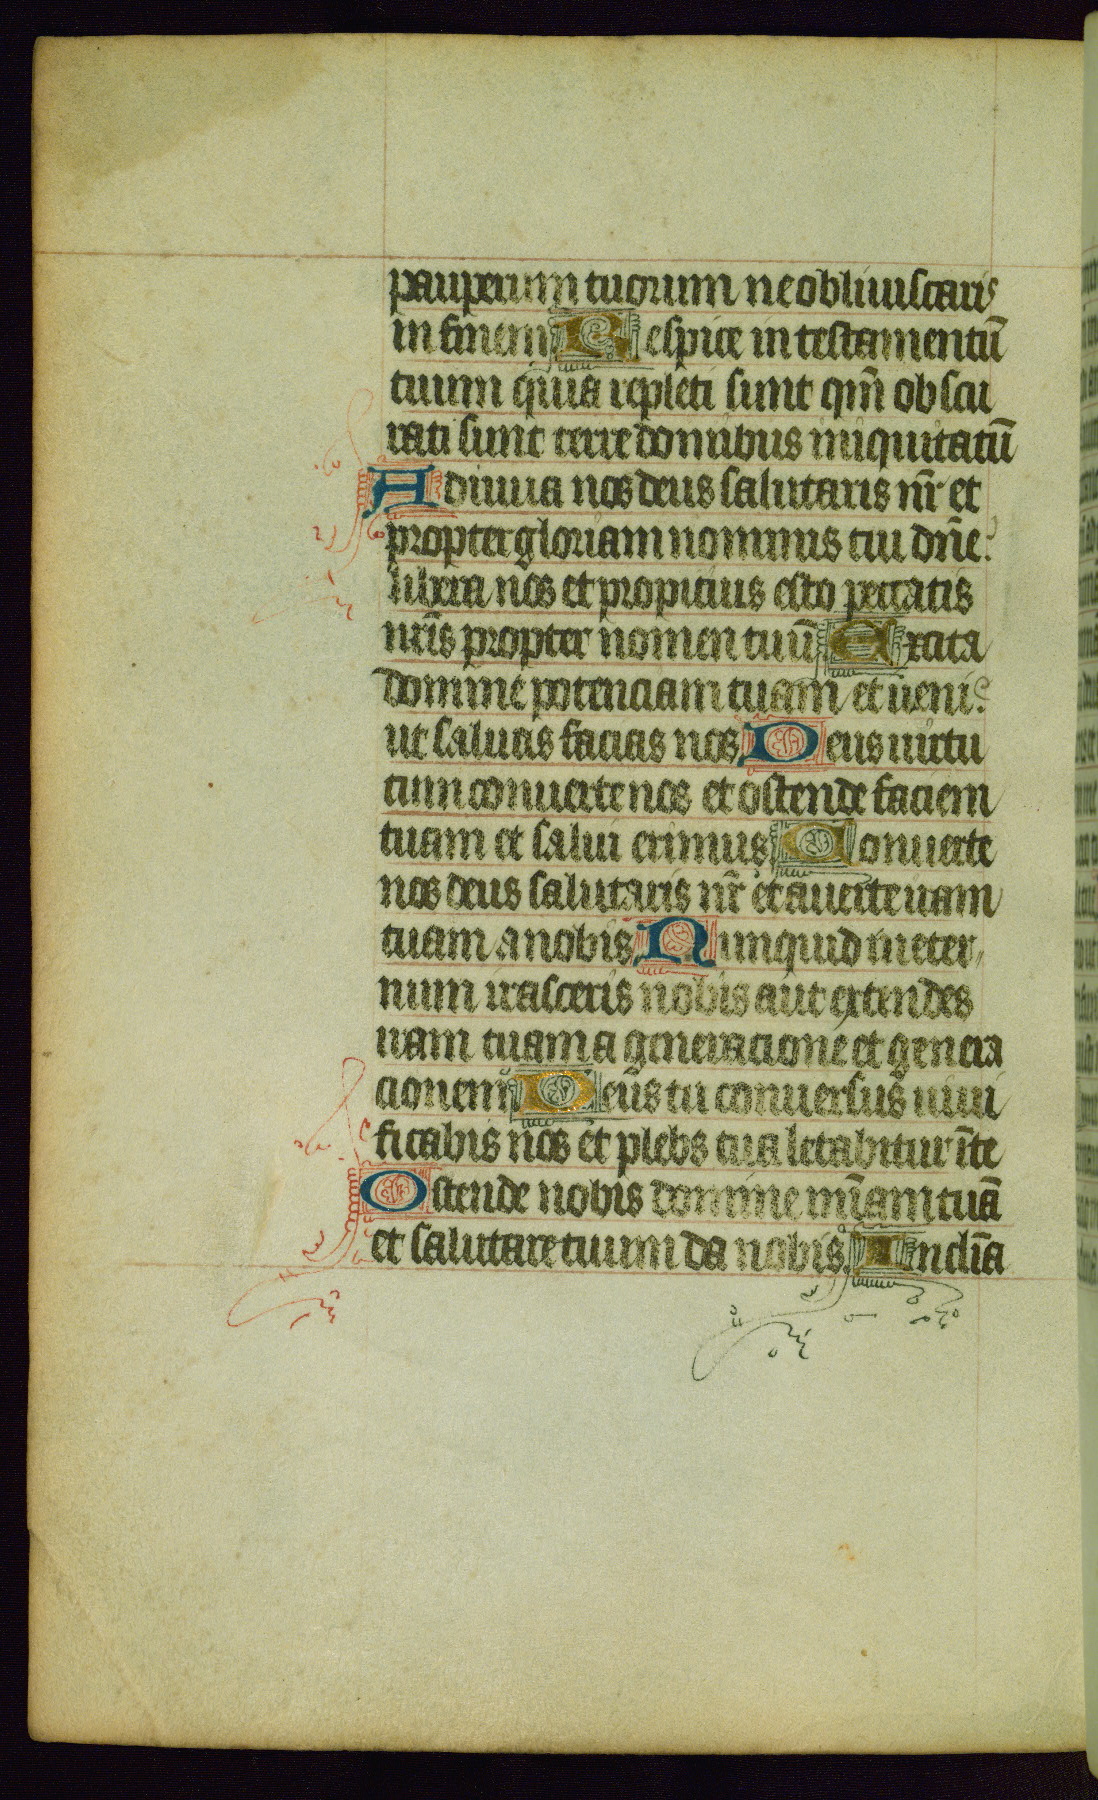 pauperum tuorum ne obliuiscaris
in finem Respice in testamentū
tuum quia repleti sunt qm̄ obscu
rati sunt terre domibus iniquitatū
Adiuua nos deus salutaris nr̄ et
propter gloriam nominis tui dn̄e
libera nos et propicius esto peccatis
nr̄is propter nomen tuū Excita
domine potenciam tuam et ueni
ut saluas facias nos Deus uirtu
tum conuerte nos et ostende faciem
tuam et salui erimus Conuerte
nos deus salutaris nr̄ et auerte iram
tuam a nobis Numquid in eter
num irasceris nobis aut extendes
iram tuam a generacione et genera
cionem Deus tu conuersus uiui
ficabis nos et plebs tua letabitur īte
Ostende nobis domine mīam tuā
et salutare tuum da nobis Inclīa